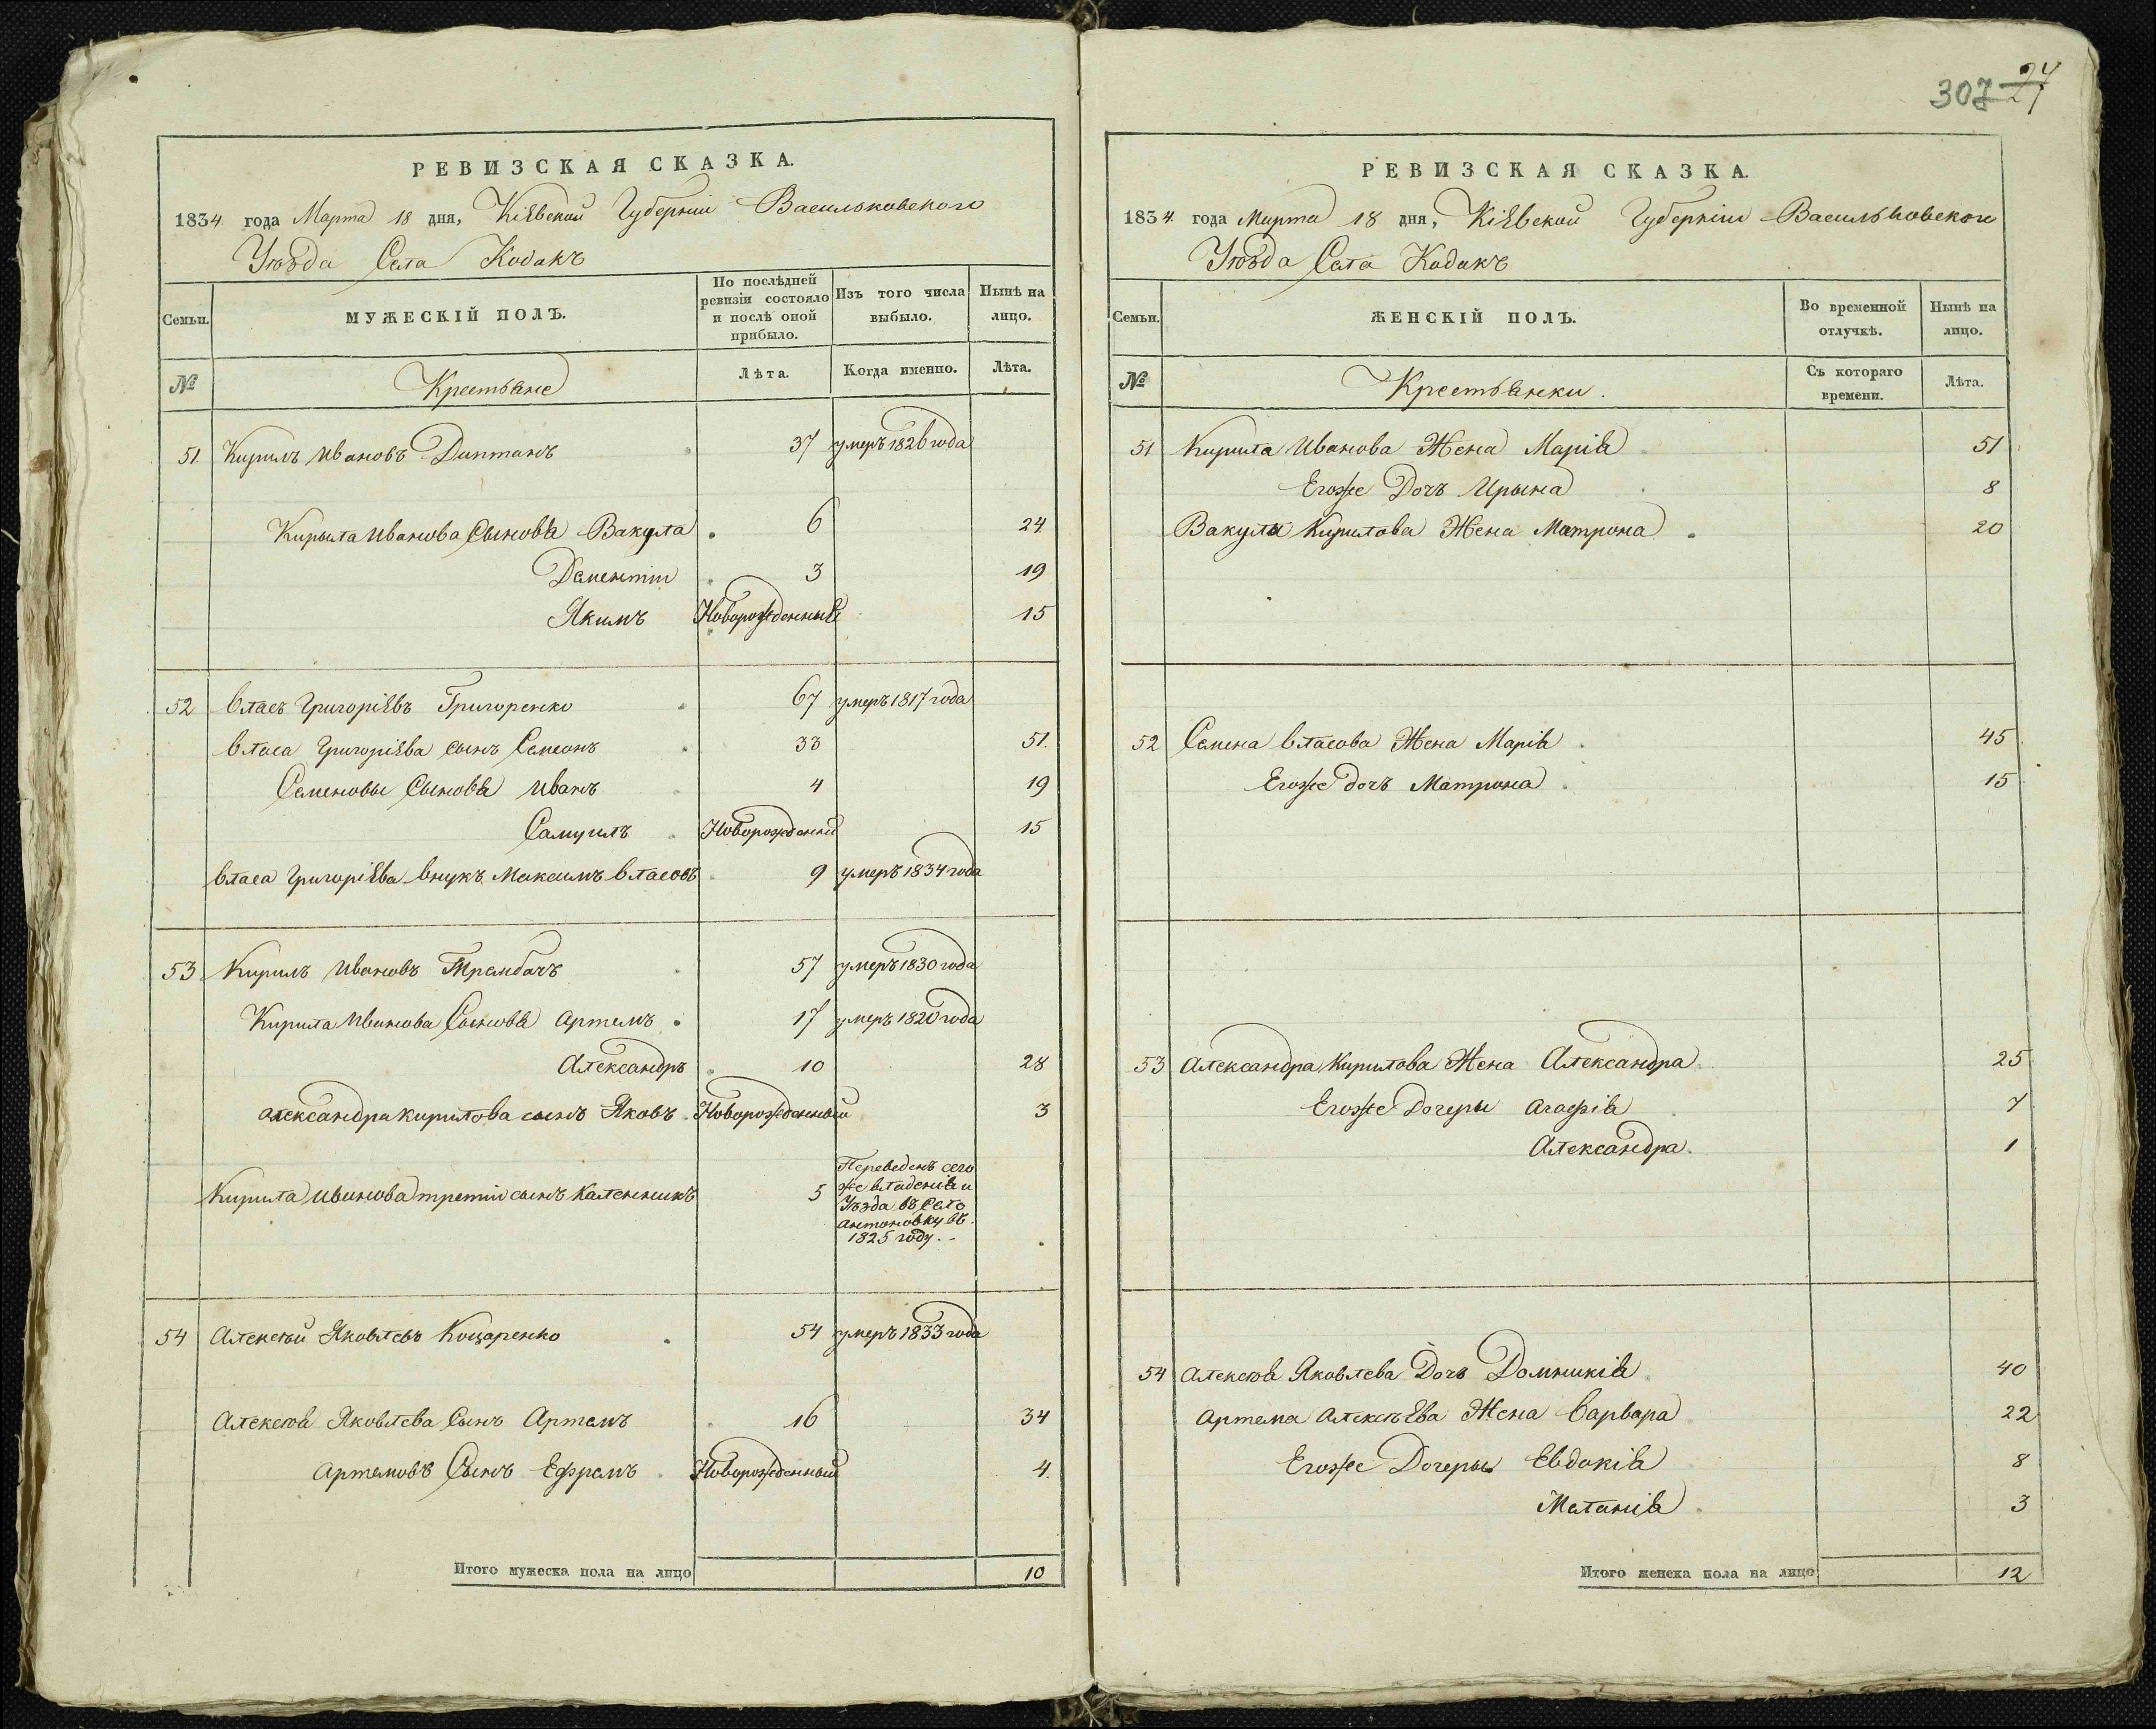 307 24
27
РЕВИЗСКАЯ СКАЗКА.
1834 года Марта 18 дня, Кіевской Губерніи Васильковского
Уѣзда Села Кодакъ
Семьи. МУЖЕСКІЙ ПОЛЪ. По послѣдней ревизіи состояло и послѣ оной прибыло. Изъ того числа выбыло. Нынѣ на лицо.
№ Крестьяне Лѣта. Когда именно. Лѣта.
51. Кирилъ Ивановъ 37 умеръ 1826 года
Кирыла Иванова Сыновья Вакула 6 24
Дементіи 3 19
Якимъ Новорожденные 15
52 Власъ Григоріевъ Григоренко 67 умеръ 1817 года
Власа Григоріева сынъ Семеонъ 33 51.
Семеновы Сыновья Иванъ 4 19
Самуилъ Новорожденый 15
Власа Григоріева внукъ Максимъ Власовъ 9 умеръ 1834 года
53 Кирилъ Ивановъ Трембачъ 57 умеръ 1830 года
Кирила Иванова Сыновья Артемъ 17 умеръ 1820 года
Александръ 10 28
Александра Кирилова сынъ Яковъ Новорожденный 3
Кирила Иванова третіи сынъ Каленникъ 5 Переведенъ сего
же владенія и
Уѣзда въ Село
Антоновку въ
1825 году.
54 Алексѣй Яковлевъ Коцаренко 54 умеръ 1833 года
Алексѣя Яковлева Сынъ Артемъ 16 34
Артемовъ Сынъ Ефремъ Новорожденный 4.
Итого мужеска пола на лицо 10
РЕВИЗСКАЯ СКАЗКА.
1834 года Марта 18 дня, Кіевской Губерніи Васильковского
Уѣзда Села Кодакъ
Семьи. ЖЕНСКІЙ ПОЛЪ. Во временной отлучкѣ. Нынѣ на лицо.
№ Крестьянки. Съ котораго времени. Лѣта.
51 Кирила Иванова Жена Марія 51
Егоже Дочъ Ирына 8
Вакулы Кирилова Жена Матрона 20
52 Семена Власова Жена Марія 45
Егоже дочъ Матрона 15
53 Александра Кирилова Жена Александра 25
Егоже Дочеры Агафія 7
Александра. 1
54 Алексѣя Яковлева Дочъ Домникія 40
Артема Алексѣева Жена Варвара 22
Егоже Дочеры Евдокія 8
Меланія 3
Итого женска пола на лицо 12